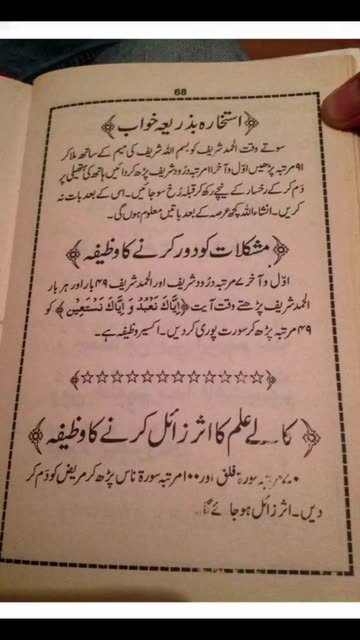 68
استخارہ بذریعہ خواب
سوتے وقت الحمد شریف کو بسم اللہ شریف کی میم کے ساتھ ملا کر
۹۱ مرتبہ پڑھیں اوّل و آخر ۱۱ مرتبہ درُود شریف پڑھ کر دائیں ہاتھ کی ہتھیلی پر
دَم کر کے رخسار کے نیچے رکھ کر قبلہ رُخ سو جائیں۔ اس کے بعد بات نہ
کریں۔ انشاء اللہ کچھ عرصہ کے بعد باتیں معلوم ہوں گی۔
مشکلات کو دور کرنے کا وظیفہ
اوّل و آخر ۷ مرتبہ درُود شریف اور الحمد شریف ۴۹ بار اور ہر بار
الحمد شریف پڑھتے وقت آیت ﴿اِیَّاکَ نَعْبُدُ وَ اِیَّاکَ نَسْتَعِیْن﴾ کو
۴۹ مرتبہ پڑھ کر سورت پوری کر دیں۔ اکسیر وظیفہ ہے۔
☆☆☆☆☆☆☆☆☆☆☆☆☆
کالے علم کا اثر زائل کرنے کا وظیفہ
مرتبہ سورۃ فلق اور ۱۰۰ مرتبہ سورۃ ناس پڑھ کر مریض کو دَم کر
دیں۔ اثر زائل ہو جائے گا۔